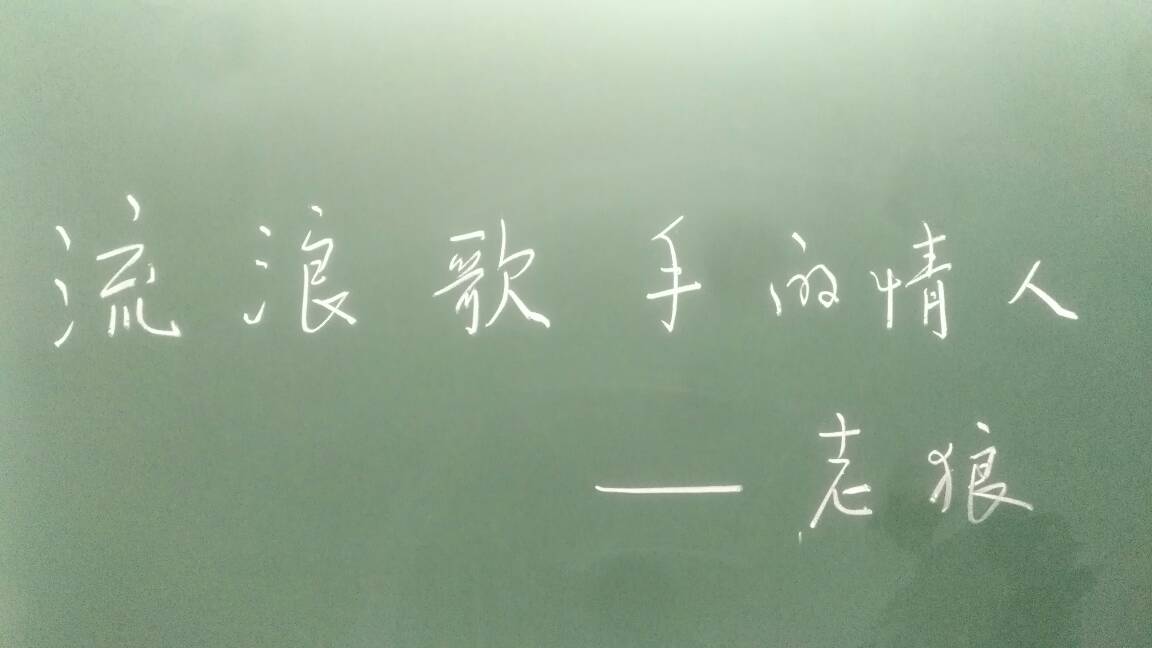 流浪歌手的情人
——老狼